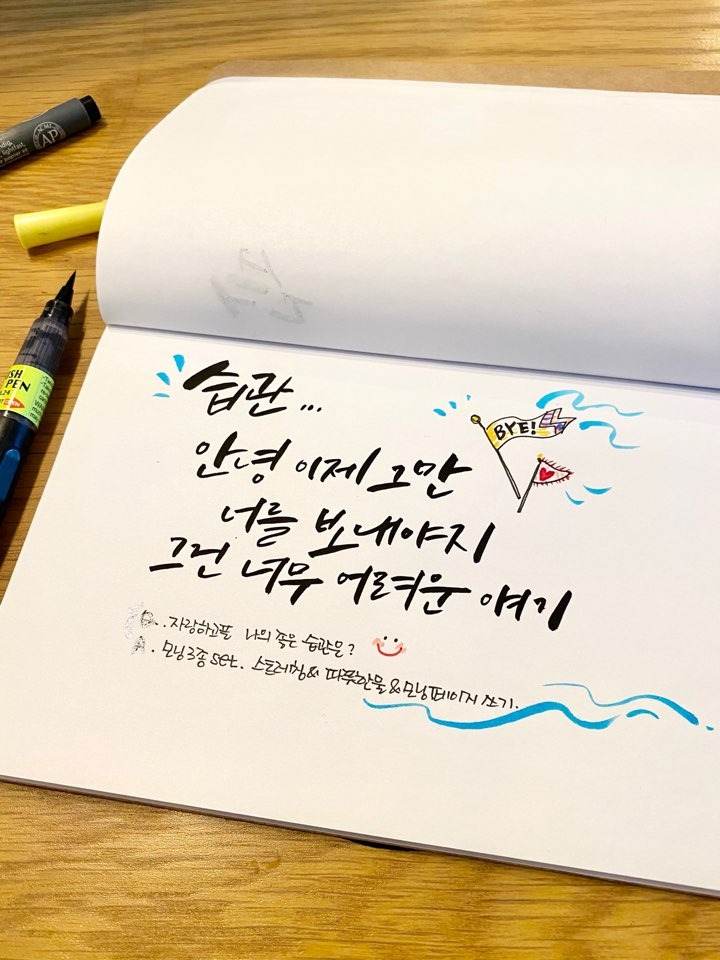 습관...
BYE!
안녕 이제 그만
너를 보내야지
그런 너무 어려운 얘기
Q. 자랑하고플 나의 좋은 습관은?
A. 모닝3종set. 스트레칭& 따뜻한물&모닝페이지 쓰기.
AP
SH
PEN